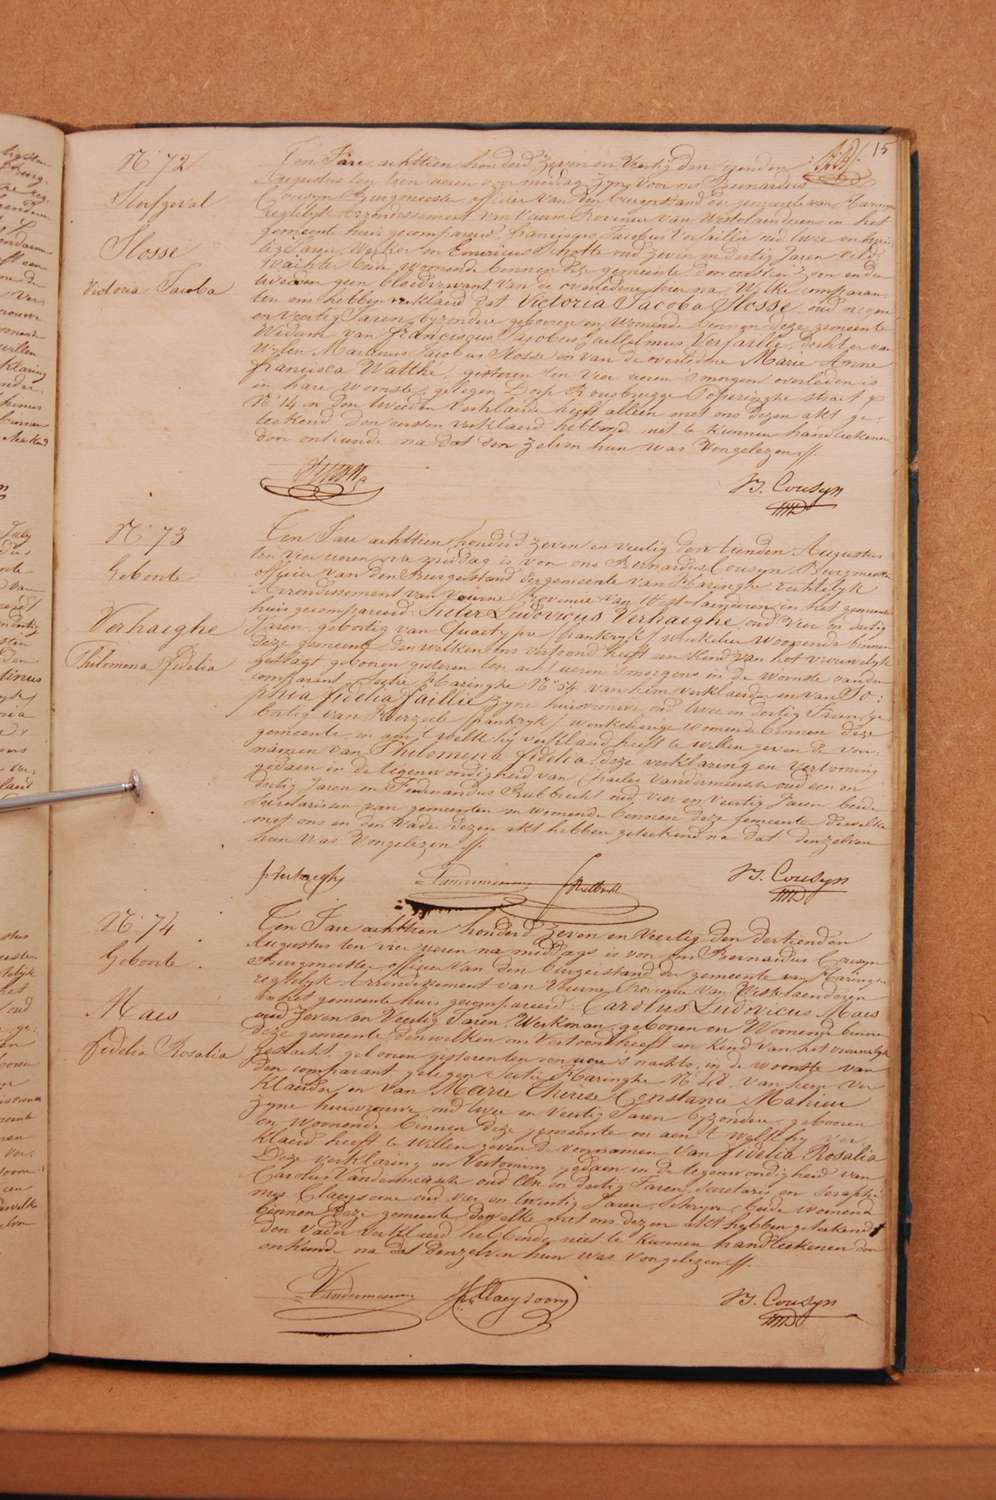 15
N.° 72
Sterfgeval
Slosse
Victoria Jacoba
Ten Jare achttien honderd zeven en veertig den
Augustus ten tien uren voor middag zyn voor ons Bernardus
Cousyn Burgmeester officier van den burgerstand der gemeente van Haringhe
regtelyk Arrondissement van Veurne Provincie van Westvlaenderen in het
gemeente huis gecompareerd franciscus Jacobus Versaillie oud twee en
Jaren Werker en Emericus Schotte oud zeven en dertig Jaren veld
wachter beide woonende binnen deze gemeente den eersten zoon en den
tweeden geen bloedverwant van de overledene hier na, Welke comparan-
ten ons hebben verklaerd dat Victoria Jacoba Slosse, oud negen
en veertig Jaren, byzondere geboren en wonende binnen deze gemeente
Weduwe van franciscus Jacobus Guillelmus Versaillie, dochter van
Wylen Marinus Jacobus Slosse en van de overledene Marie Anne
francisca Watthé, gisteren ten vier uren 's morgens overleden is
in hare woonste, gelegen Dorp Rousbrugge Poperinghe straet
N.° 14 en den tweeden verklaerde heeft alleen met ons dezen akt ge-
teekend, den eersten verklaerd hebbende niet te kunnen handteekenen
don onkunde na dat den zelven hun was voorgelezen
B. Cousyn
N.° 73
Geboorte
Verhaeghe
Philomena fidelia
Ten Jare achttien honderd zeven en veertig den tienden Augustus
ten vier uren na middag is voor ons Bernardus Cousyn Burgmeester
officier van den Burgerstand der gemeente van Haringhe regtelyk
Arrondissement van Veurne Provincie van Westvlaenderen in het gemeente
huis gecompareerd: Pieter Ludovicus Verhaeghe oud vier en dertig
Jaren, geboortig van Quaetypre /frankryk/ winkelier woonende binnen
deze gemeente, den welken ons vertoond heeft een kind van het vrouwelyk
geslagt geboren gisteren ten acht uren 's morgens in de woonste van den
comparant Sectie Haringhe N.° 54, van hem verklaerder en van So-
phia fidelia faillie zyne huisvrouwe oud twee en dertig Jaren, ge-
boortig van Herzeele /frankryk/ winkelierige wonende binnen deze
gemeente, en aen 't welk hy verklaerd heeft te willen geven de voor-
namen van Philomena fidelia, deze verklaring en vertooning
gedaen in de tegenwoordigheid van Charles Vandermeersch oud een en
dertig Jaren en Ferdinandus Rubbrecht oud vier en veertig Jaren beide
Secretarissen van gemeenten en wonende binnen deze gemeente dewelke
met ons en den vader dezen akt hebben geteekend na dat denzelven
hun was voorgelezen
P Verhaeghe
Vandermeersch
Rubbrecht
B. Cousyn
N.° 74
Geboorte
Maes
fidelia Rosalia
Ten Jare achttien honderd zeven en veertig den dertienden
Augustus ten vier uren na middag is voor ons Bernardus Cousyn
Burgmeester officier van den burgerstand der gemeente van Haringhe
regtelyk Arrondissement van Veurne Provincie van Westvlaenderen
in het gemeente huis gecompareerd: Carolus Ludovicus Maes
oud zeven en veertig Jaren, Werkman, geboren en woonend binnen
deze gemeente den welken ons vertoont heeft een kind van het vrouwelyk
geslacht, geboren gisteren ten een ure 's nachts, in de woonste van
den comparant gelegen Sectie Haringhe N.° van hem ver-
klaerder en van Marie Therese Constance Mahieu
zyne huisvrouwe oud twee en veertig Jaren byzondere, geboren
en woonende binnen deze gemeente en aen 't welk hy ver-
klaerd heeft te willen geven de voornamen van fidelia Rosalia
Deze verklaring en vertooning gedaen in de tegenwoordigheid van
Carolus Vandermeersch oud een en dertig Jaren, Secretaris en Seraphi-
nus Claeysoone oud vier en twintig Jaren beide wonend
binnen deze gemeente dewelke met ons dezen akt hebben geteekend
den vader verklaerd hebbende niet te kunnen handteekenen don
onkunde na dat denzelven hun was voorgelezen
Vandermeersch
Claeysoone
B. Cousyn